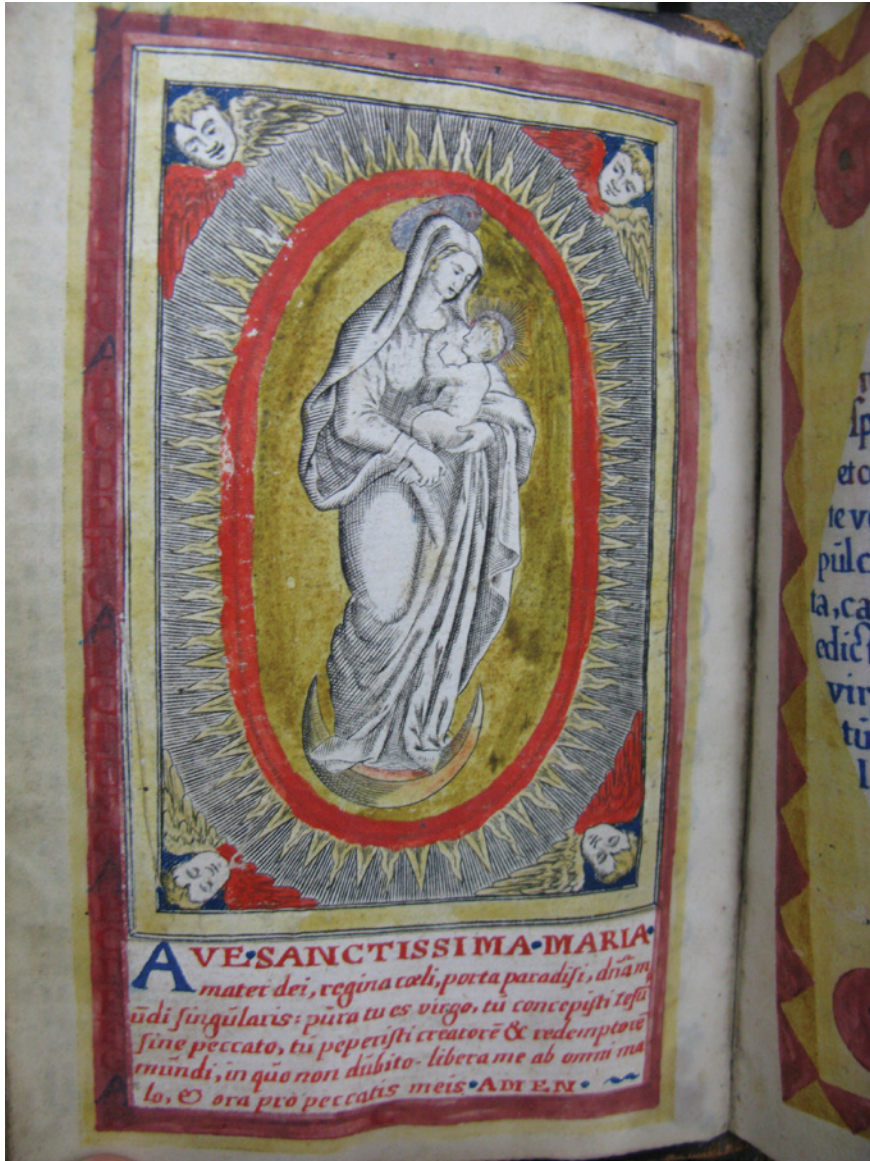 AVE•SANCTISSIMA•MARIA•
mater dei, regina cœli, porta paradisi, dn̄a m
ūdi singūlaris: pūra tu es virgo, tū concepisti Iesū
sine peccato, tū peperisti creatorē & redemptorē
mūndi, in qūo non dūbito• libera me ab omni ma
lo, & ora prò peccatis meis•AMEN•
et c
te ve
pūlc
ta, ca
edict
vir
tū
l